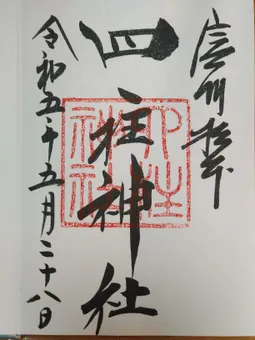 信州松本
四柱神社
令和五年五月二十八日